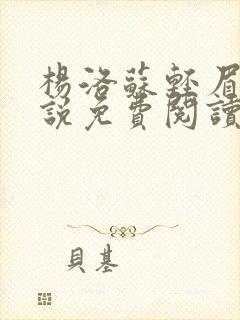 楊洛蘇輕眉
說免費閱讀
貝基